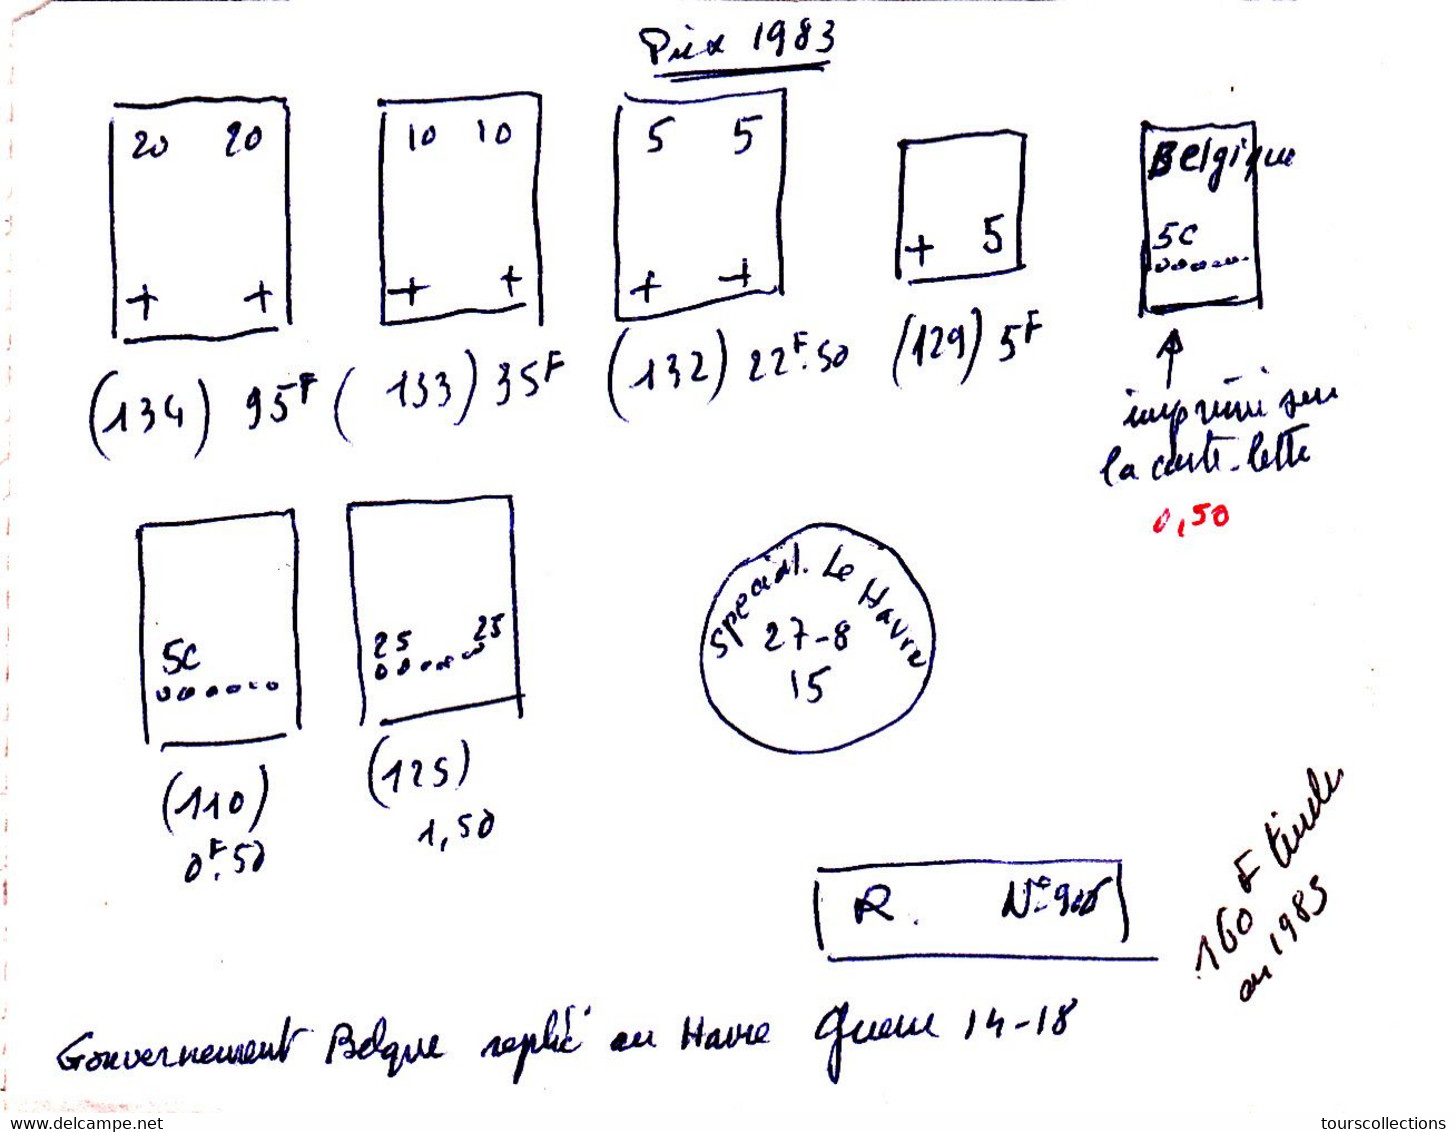 Prix 1983
20 20
+ +
(134) 95F
10 10
+ +
(133) 35F
5 5
+ +
(132) 22F.50
+ 5
(129) 5F
Belgique
5c
imprimé sur
la carte-lettre
0,50
5c
(110)
0F.50
25 25
(125)
1,50
Special. Le Havre
27-8
15
R. N°
160 F
en 1983
Gouvernement Belge replié au Havre Guerre 14-18
delcampe.net
tourscollections